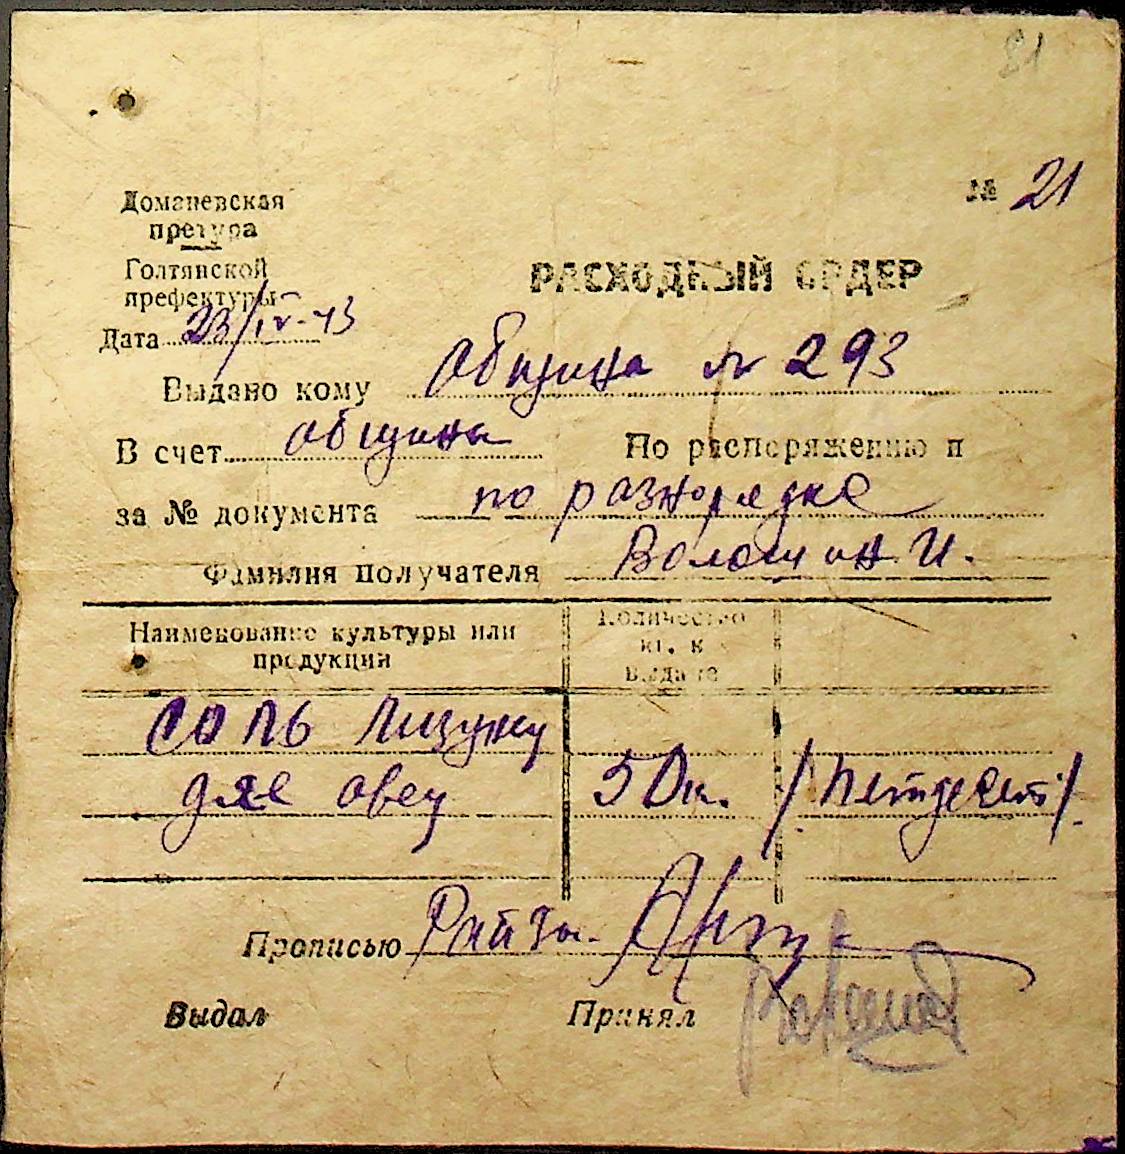 21
№ 21
Доманевская
претура
Голтянской
префектуры
РАСХОДНЫЙ ОРДЕР
Дата 23/IV-43
Выдано кому Община № 293
В счет община По распоряжению п
за № документа по разнорядке
Фамилия получателя Волошин И.
Наименование культуры или
продукции
Количество
кг. к
выдаче
соль лизунку
для овец 50 к. /петдесят/
Прописью
Выдал Принял